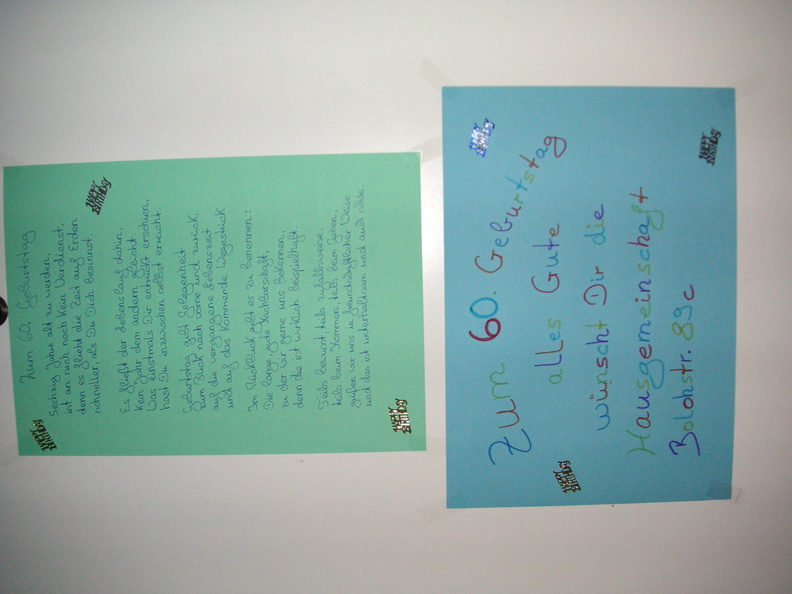 Zum 60. Geburtstag
Sechzig Jahre alt zu werden,
ist an sich noch kein Verdienst.
denn es flieht die Zeit auf Erden
schneller, als Du Dich besinnst.
Es fließt der Lebenslauf dahin,
kein Jahr dem andern gleicht
Was einstmals Dir entrückt erschien,
hast Du inzwischen selbst erreicht.
Geburtstag gibt Gelegenheit
zum Blick nach vorne und zurück,
auf die vergangene Lebenszeit
und auf das kommende Wegestück.
Im Rückblick gilt es zu benennen:
Die lange, gute Nachbarschaft,
zu der wir gerne uns bekennen,
denn die ist wirklich beispielhaft.
Teils bewusst, teils zufallsweise,
teils beim Kommen, teils beim Gehen,
grüßen wir uns in freundschaftlicher Weise
und das ist unterhaltsam und auch nett.
HAPPY BIRTHDAY
HAPPY BIRTHDAY
HAPPY BIRTHDAY
Zum 60. Geburtstag
alles Gute
wünscht Dir die
Hausgemeinschaft
Bolohstr. 89c
HAPPY BIRTHDAY
HAPPY BIRTHDAY
HAPPY BIRTHDAY